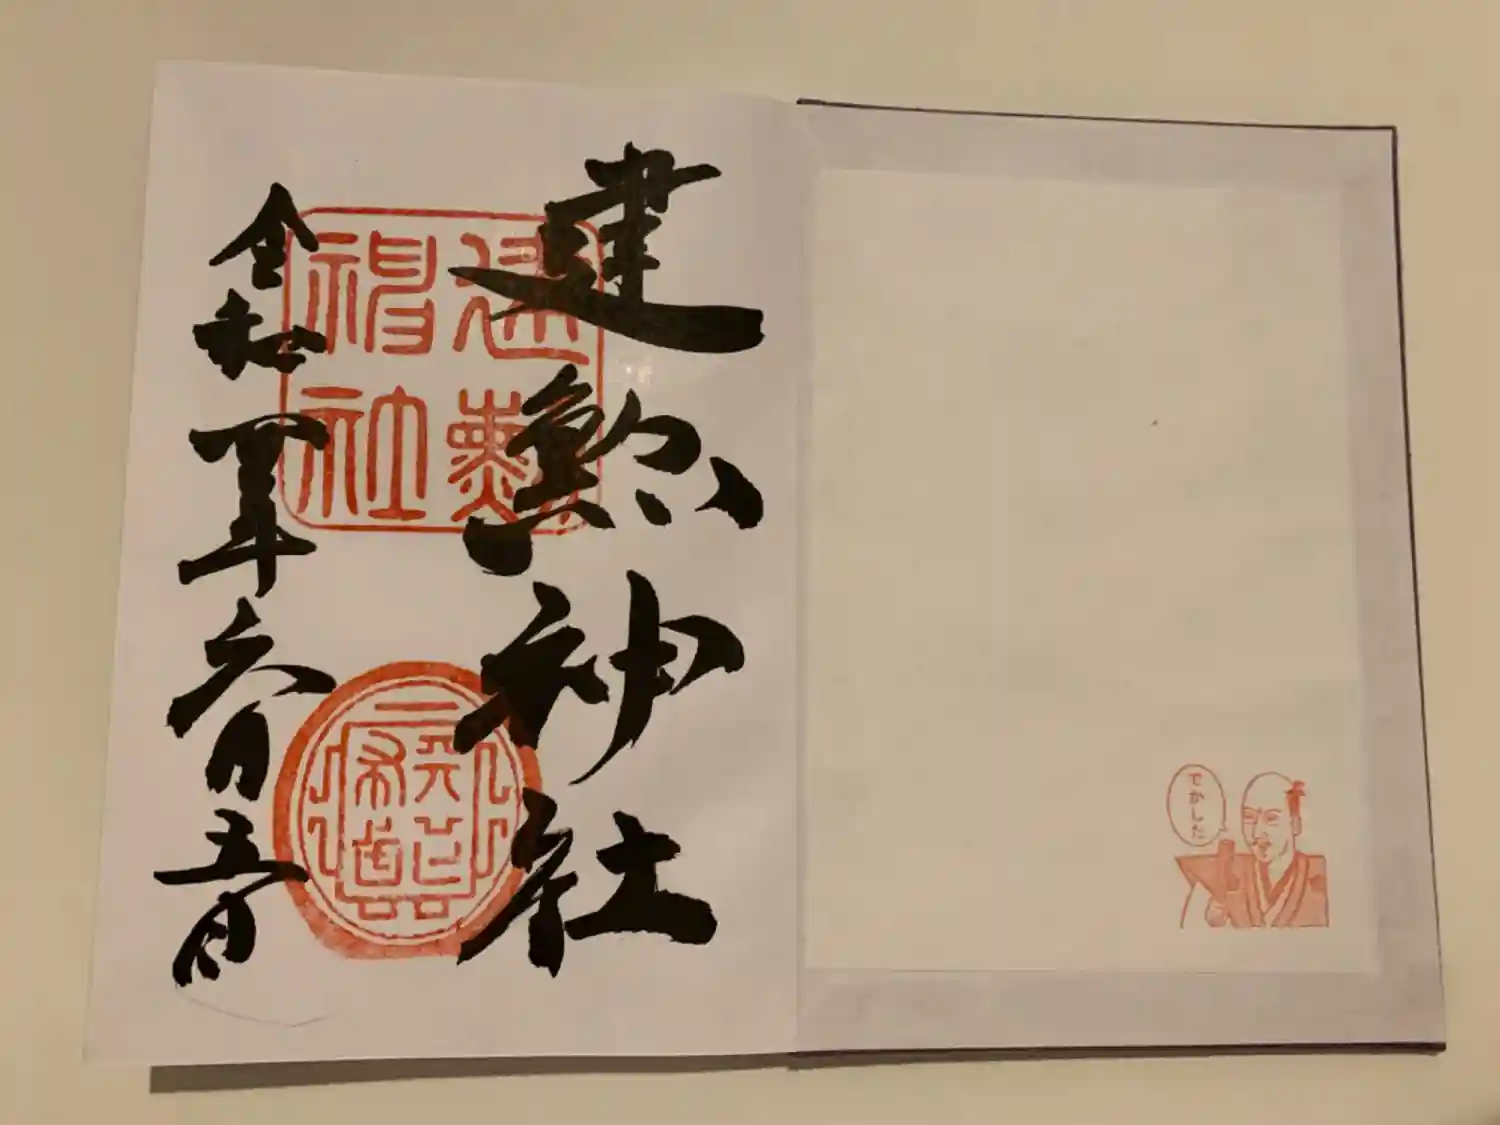 でかした
建勲神社
建勲
神社
令和四年六月五日